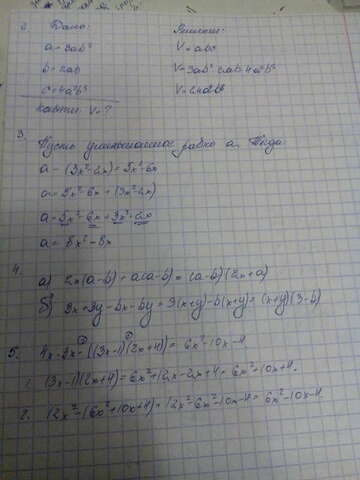 2. Дано: Решение:
a = 3ab² V = abc
b = 2ab V = 3ab² · 2ab · 4a²b³
c = 4a²b³ V = 24a⁴b⁶
Найти: V = ?
3. Пусть уменьшаемое равно a. Тогда:
a - (3x² - 2x) = 5x² - 6x
a = 5x² - 6x + (3x² - 2x)
a = 5x² - 6x + 3x² - 2x
a = 8x² - 8x
4.
а) 2x(a-b) + a(a-b) = (a-b)(2x+a)
б) 3x + 3y - bx - by = 3(x+y) - b(x+y) = (x+y)(3-b)
5. 4x · 3x - ((3x-1)(2x+4)) = 6x² - 10x - 4
1. (3x-1)(2x+4) = 6x² + 12x - 2x + 4 = 6x² - 10x + 4.
2. 12x² - (6x² + 10x + 4) = 12x² - 6x² - 10x - 4 = 6x² - 10x - 4